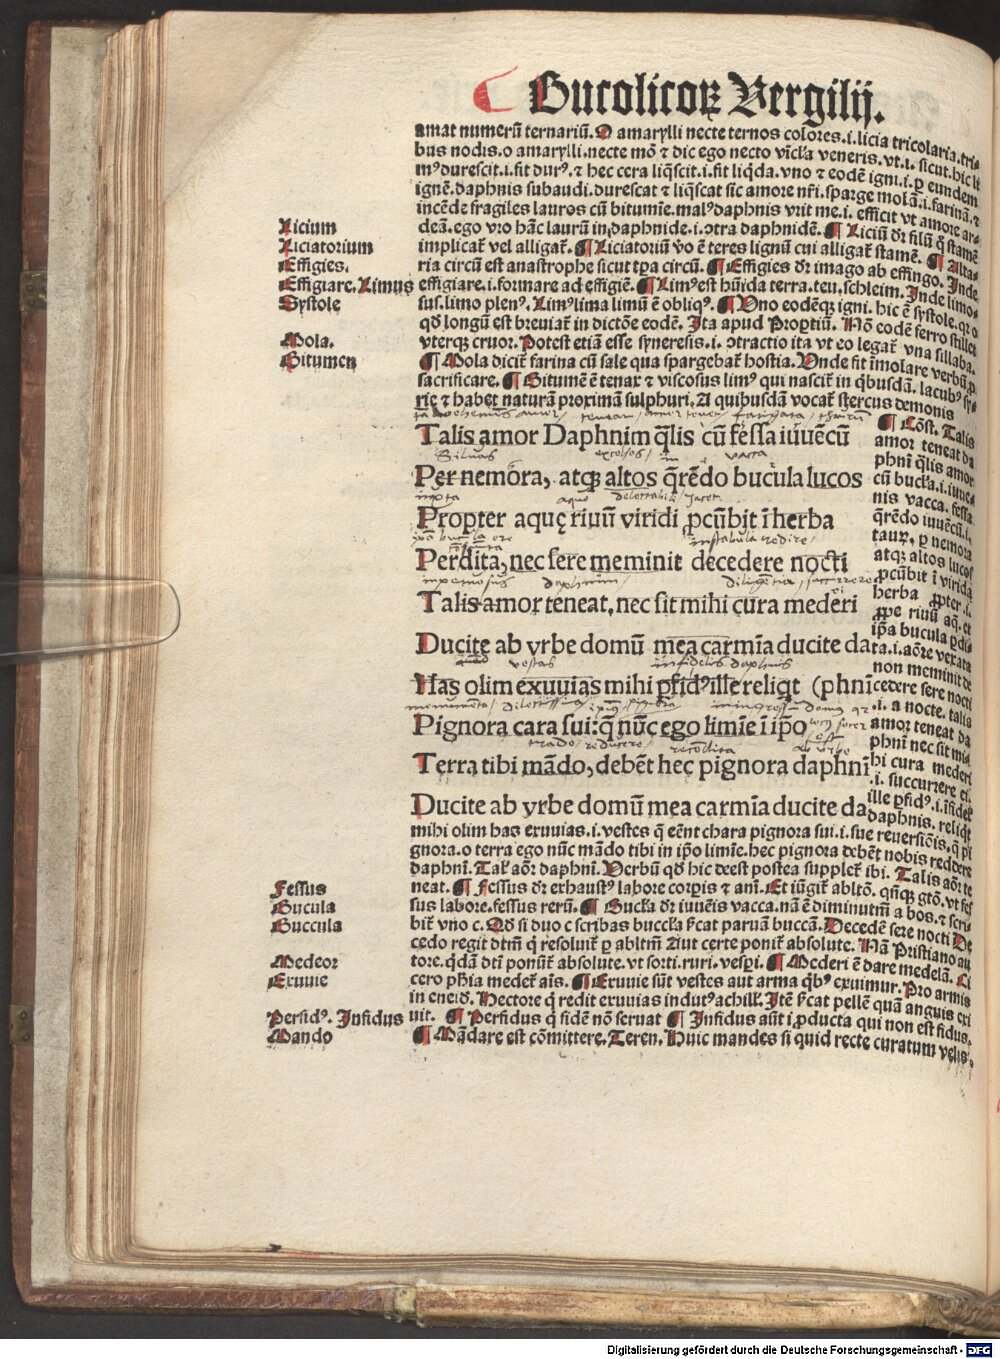 Bucolicoꝝ Vergilij.
amat numerū ternariū. O amarylli necte ternos colores .i. licia tricolaria. tri-
bus nodis. o amarylli. necte mō ⁊ dic ego necto vīcl'a veneris. vt .i. sicut. hic li
mꝰ durescit .i. fit durꝰ. ⁊ hec cera liq̄scit .i. fit liq̄da. vno ⁊ eodē igni .i. ꝑ eundem
ignē. daphnis subaudi. durescat ⁊ liq̄scat sic amore nr̄i. sparge molā .i. farinā. ⁊
incēde fragiles lauros cū bitumīe. malꝰ daphnis vrit me .i. efficit vt amore ar-
Licium
deā. ego vro hāc laurū in daphnide .i. ɔtra daphnidē. ¶ Liciū dr̄ filū q̄ stamē
Liciatorium
implicat̄ vel alligat̄. ¶ Liciatoriū v̄o ē teres lignū cui alligat̄ stamē. ¶ Alta-
Effigies.
ria circū est anastrophe sicut tr̄a circū. ¶ Effigies dr̄ imago ab effingo. Inde
Effigiare. Limus
effigiare .i. formare ad effigiē. ¶ Limꝰ est hūida terra. teu. schleim. Inde limo-
Systole
sus. limo plenꝰ. Limꝰ lima limū ē obliqꝰ. ¶ Uno eodēqꝫ igni. hic ē systole. qr o
qd̄ longū est breviat̄ in dictōe eodē. Ita apud Propertiū. Nō eodē ferro stillet
Mola.
vterqꝫ cruor. Potest etiā esse syneresis .i. ɔtractio ita vt eo legat̄ vna sillaba.
Bitumen
¶ Mola dicit̄ farina cū sale qua spargebat̄ hostia. Unde fit īmolare verbū ꝓ
sacrificare. ¶ Bitumē ē tenax ⁊ viscosus limꝰ qui nascit̄ in q̄busdā. lacubꝰ sy-
rie ⁊ habet naturā proximā sulphuri. A quibusdā vocat̄ stercus demonis
Talis amor Daphnim q̄lis cū fessa iuuēcū
Silvas excelsos in vacca
Per nemora, atqꝫ altos q̄rēdo bucula lucos
iuxta aque delectabili jacet
Propter aquę riuū viridi ꝓcūbit ī herba
in stabula redire
Perdita, nec sere meminit decedere nocti
daphnim diligentia succurrere
Talis amor teneat, nec sit mihi cura mederi
Ducite ab vrbe domū mea carmīa ducite da
vestes infidelis daphnis
Has olim exuuias mihi ꝑfidꝰ ille reliq̄t (phnī
Pignora cara sui: q̄ nūc ego limīe ī ip̄o
trado recondita ab vrbe
Terra tibi mādo, debēt hęc pignora daphnī
Ducite ab vrbe domū mea carmīa ducite da
¶ Cōst. Talis
amor teneat da
phnī q̄lis amor
cū bucl'a .i. iuue-
nis vacca. fessa
q̄rēdo iuuēcū .i.
taurꝫ, ꝑ nemora
atqꝫ altos lucos
ꝓcūbit ī virida
herba ꝓpter .i.
ꝓpe riuū aq̄. et
ip̄a bucula ꝑdi-
ta .i. aōre vexata
non meminit de
cedere sere nocti
.i. a nocte. talis
amor teneat da
phnī nec sit mi-
hi cura mederi
.i. succurrere ei.
ille ꝑfidꝰ .i. īfidel'
daphnis. reliq̄t
mihi olim has exuuias .i. vestes q̄ eēnt chara pignora sui .i. sue reuersiōis. q̄ pi
gnora. o terra ego nūc mādo tibi in ip̄o limīe. hec pignora debēt nobis reddere
daphnī. Tal' aōr daphnī. Verbū qd̄ hic deest postea supplet̄ ibi. Talis aōr te
Fessus
neat. ¶ Fessus dr̄ exhaustꝰ labore corpis ⁊ anī. Et iūgit̄ abltō. qn̄qꝫ gtō. vt fes
Bucula
sus labore. fessus rerū. ¶ Bucl'a dr̄ iuuēis vacca. nā ē diminutm̄ a bos. ⁊ scri
Buccula
bit̄ vno c. Qd̄ si duo c scribas buccl'a s̄cat paruā buccā. Decedē sere nocti De
cedo regit dtm̄ q̄ resoluit̄ ꝑ abltm̄ Aut certe ponit̄ absolute. Nā Pristiano au
Medeor
tore. q̄dā dtī ponūt̄ absolute. vt sorti. ruri. vesp̱i. ¶ Mederi ē dare medelā. Ci
Exuuie
cero ph̄ia medet̄ aīs. ¶ Exuuie sūt vestes aut arma q̄bꝰ exuimur. Pro armis
in eneid. Hectore q̄ redit exuuias indutꝰ achill'. Itē s̄cat pellē quā anguis exi
Perfidꝰ. Infidus
uit. ¶ Perfidus q̄ fidē nō seruat ¶ Infidus aūt i ꝓducta qui non est fidus.
Mando
¶ Mādare est cōmittere. Teren. Huic mandes si quid recte curatum velis.
Digitalisierung gefördert durch die Deutsche Forschungsgemeinschaft - DFG